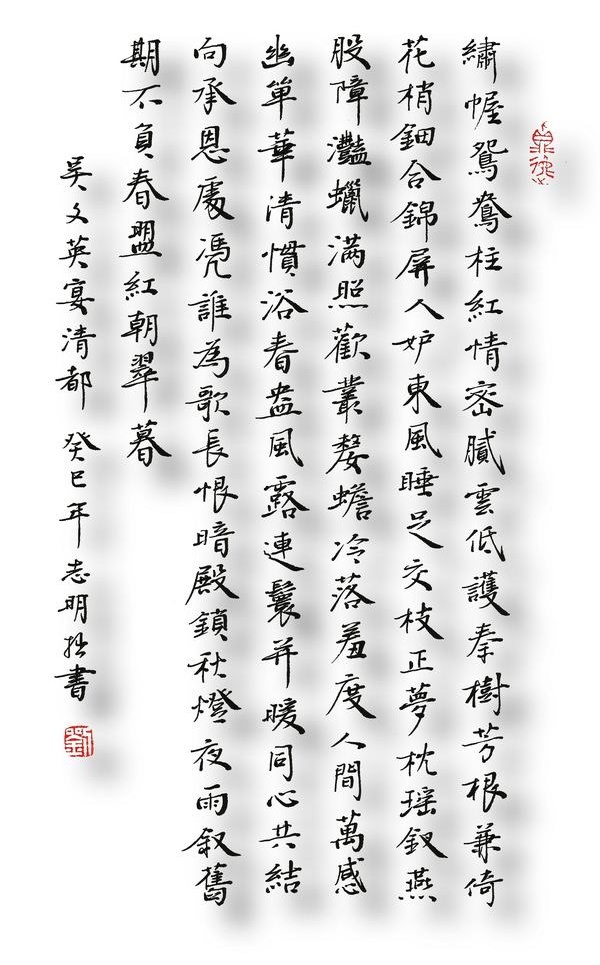 繡幄鴛鴦柱紅情密膩雲低護秦樹芳根兼倚
花梢鈿合錦屏人妒東風睡足交枝正夢枕瑶釵燕
股障灩蠟满照歡叢嫠蟾冷落羞度人間萬感
幽單華清慣浴春盎風露連鬟并暖同心共結
向承恩處凴誰為歌長恨暗殿鎖秋燈夜雨叙舊
期不負春盟紅朝翠暮
吳文英宴清都 癸巳年志明拙書
劉